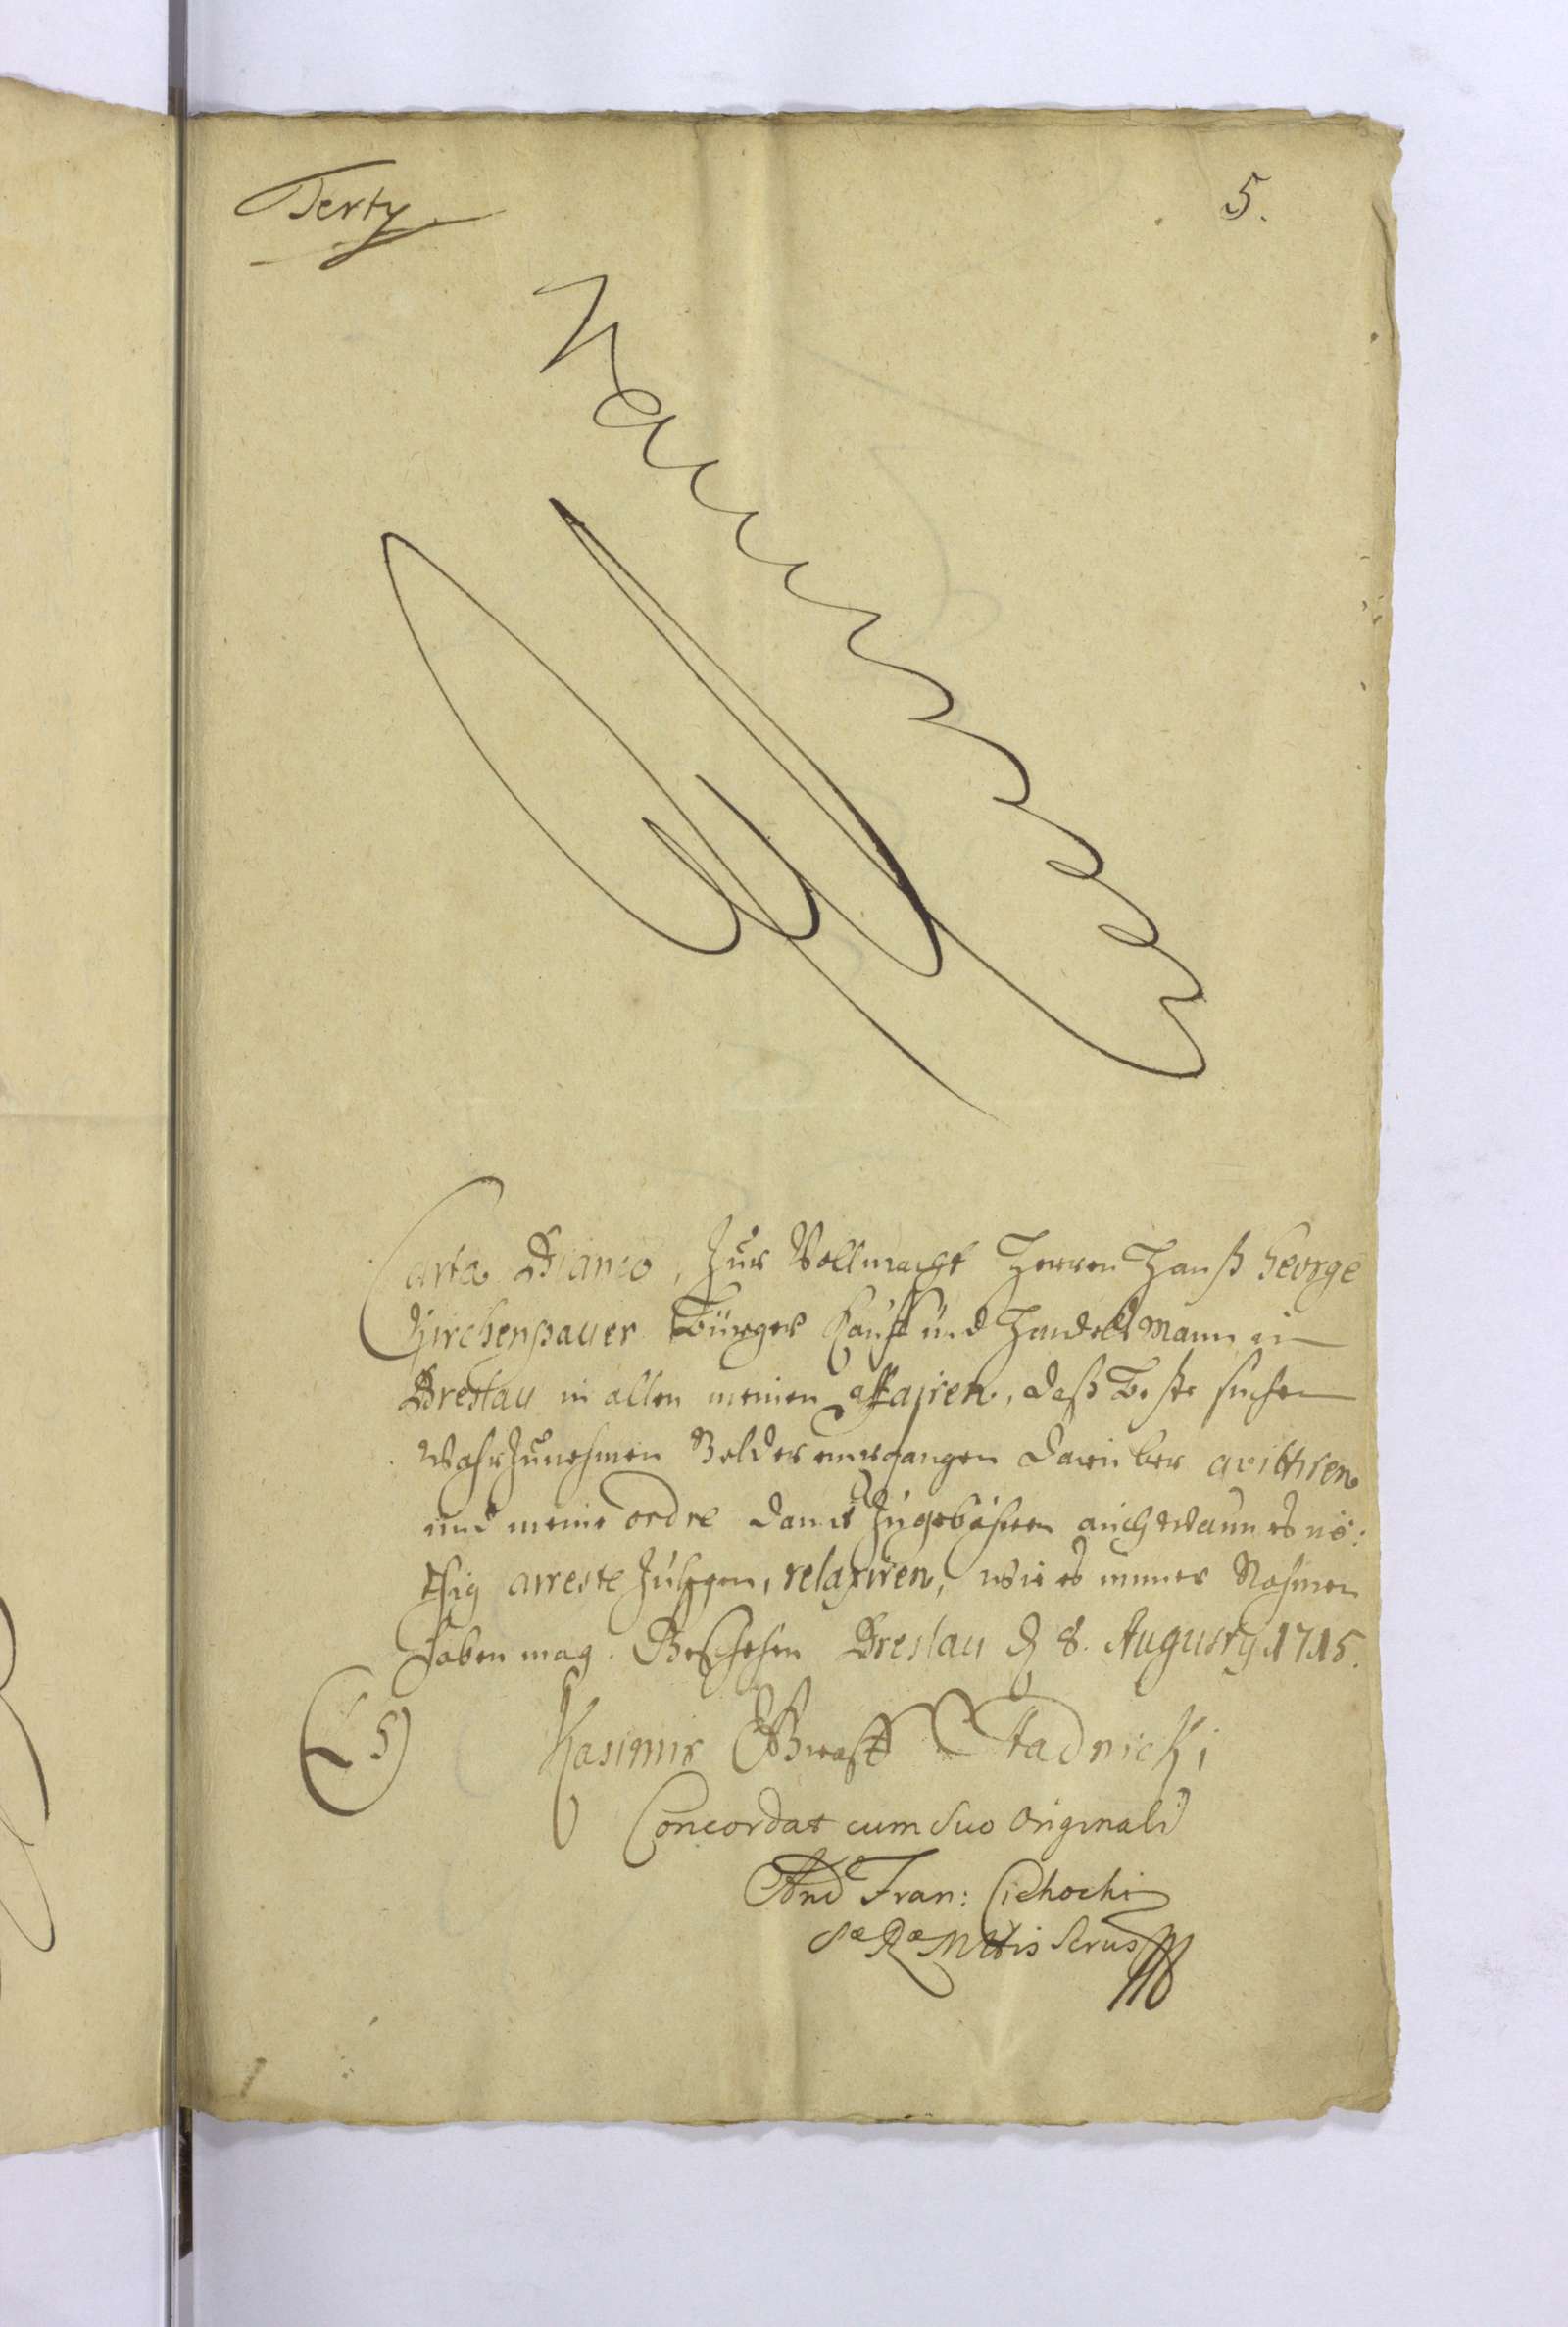 Terty
5.
Carta Bianco, zur Vollmacht Herren Hanß George
Kirchenpauer Bürger Kauff und Handelß Mann in
Breslau in allen meinen affairen, daß Beste suchen
Wahrzunehmen Gelder darüber qvittiren
und meine ordre damit zugebähren auch wann es nö:
thig arreste zulegen, relaxiren, wie es immer Nahmen
haben mag. Geschehen Breslau d 8. Augusty 1715.
(L S) Kasimir Graff Stadnicki
Concordat cum suo Originali
And Fran: Cichocki
Sæ Ræ Mttis Secrus